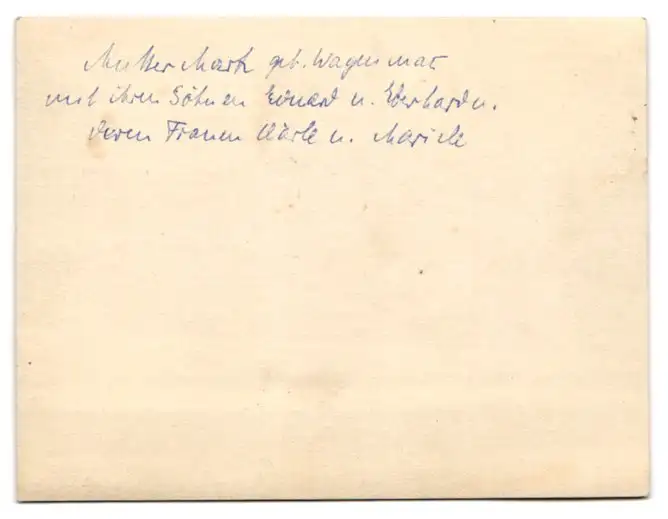 Mutter Mark geb. Wagen
mit ihren Söhnen Eduard u. Eberhard u.
deren Frauen Klärle u. Marie